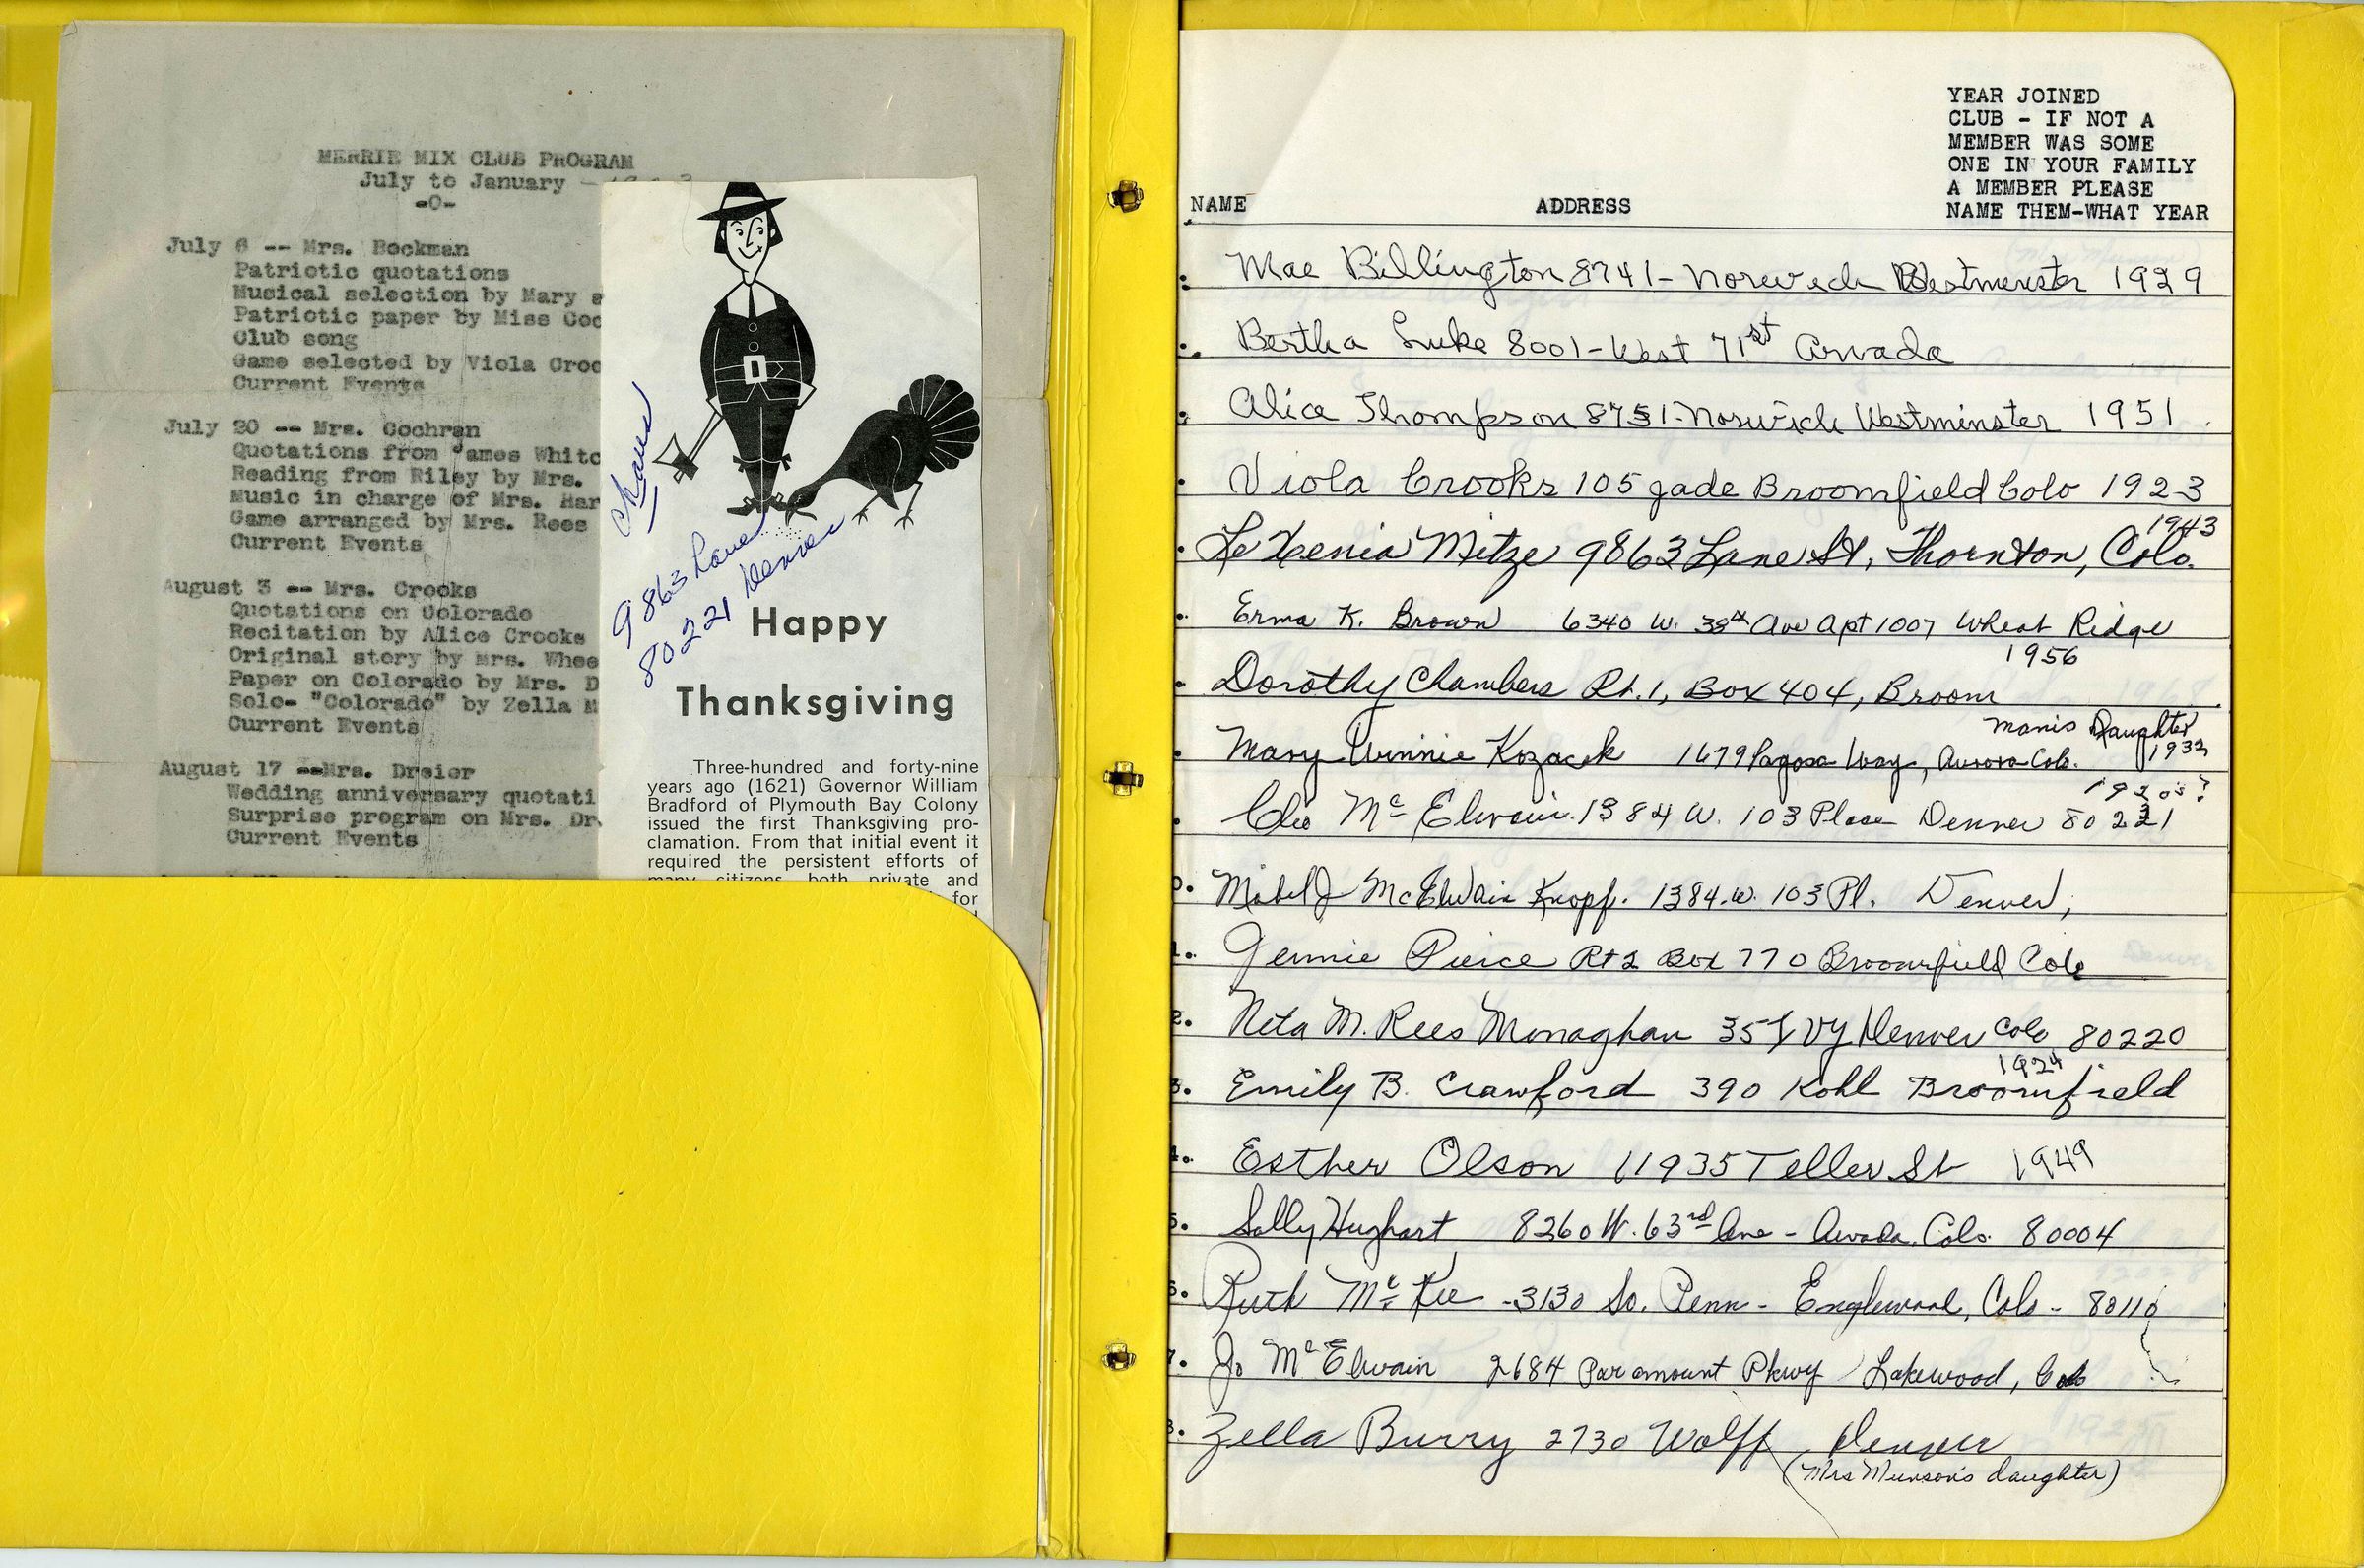 MERRIE MIX CLUB PROGRAM
July to January -
-0-
July 6 -- Mrs. Bockman
Patriotic quotations
Musical selection by Mary
Patriotic paper by Miss Coc
Club song
Game selected by Viola Croo
Current Events
July 20 -- Mrs. Cochran
Quotations from James Whitc
Reading from Riley by Mrs.
Music in charge of Mrs. Har
Game arranged by Mrs. Rees
Current Events
August 3 -- Mrs. Crooks
Quotations on Colorado
Recitation by Alice Crooks
Original story by Mrs. Whee
Paper on Colorado by Mrs. D
Solo- "Colorado" by Zella M
Current Events
August 17 --Mrs. Dreier
Wedding anniversary quotati
Surprise program on Mrs. Dr
Current Events
9863 Lane
80221 Denver
Happy
Thanksgiving
Three-hundred and forty-nine
years ago (1621) Governor William
Bradford of Plymouth Bay Colony
issued the first Thanksgiving pro-
clamation. From that initial event it
required the persistent efforts of
many citizens both private and
for
YEAR JOINED
CLUB - IF NOT A
MEMBER WAS SOME
ONE IN YOUR FAMILY
A MEMBER PLEASE
NAME THEM-WHAT YEAR
NAME ADDRESS
Mae Billington 8741- Norwich Westminster 1929
Bertha Luke 8001-West 71st Arvada
Alice Thompson 8751-Norwich Westminster 1951
Viola Crooks 105 Jade Broomfield Colo 1923
1943
LeXenia Mitze 9863 Lane St, Thornton, Colo.
Erma K. Brown 6340 W. 38th Ave Apt 1007 Wheat Ridge
1956
Dorothy Chambers Rt. 1, Box 404, Broom
Daughter
1932
Mary Winnie Kozacek 1679 Pagosa Way, Aurora Colo.
1920s?
Cleo McElwain. 1384 W. 103 Place Denver 80221
0. Mabel J McElwain Knopf. 1384. W. 103 Pl. Denver,
1. Jennie Pierce Rt 2 Box 770 Broomfield Colo
2. Neta M. Rees Monaghan 35 Ivy Denver Colo 80220
1924
3. Emily B. Crawford 390 Kohl Broomfield
4. Esther Olson 11935 Teller St 1949
5. Sally Hughart 8260 W. 63rd Ave - Arvada, Colo. 80004
6. Ruth McKee - 3130 So. Penn - Englewood, Colo - 80110
7. Jo McElwain 2684 Paramount Pkwy Lakewood, Colo
8. Zella Burry 2730 Wolff Denver
(Mrs Munson's daughter)